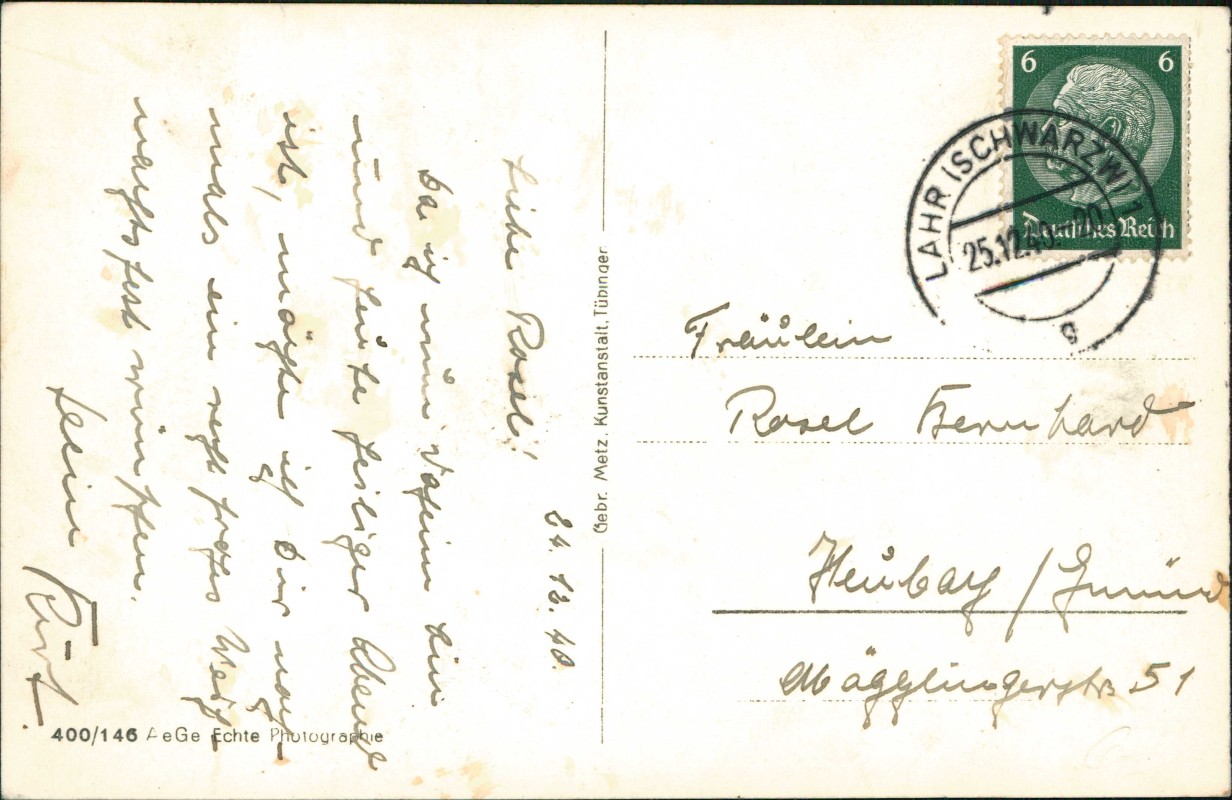 24. 12. 40.
Liebe Rosel!
Da ich nun daheim bin
und heute heiliger Abend
ist, möchte ich Dir noch-
mals ein recht frohes Weih-
nachtsfest wünschen.
Dein
Kurt.
400/146 AeGe Echte Photographie
Gebr. Metz, Kunstanstalt, Tübingen
6 6
Deutsches Reich
LAHR (SCHWARZW) 1
25.12.40.-20
g
Fräulein
Rosel Bernhard
Heubach / Gmünd
Mögglingerstr. 51